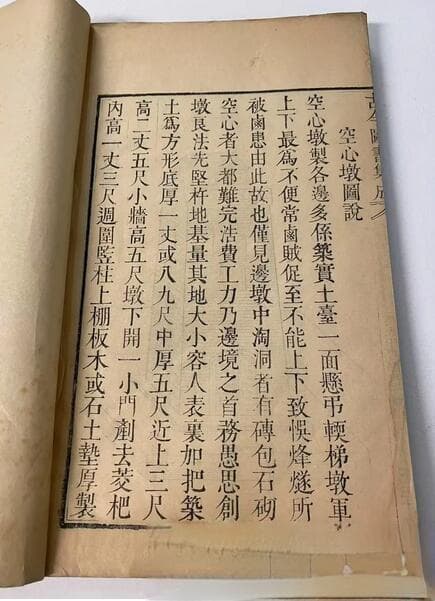 古今圖書集成
空心墩圖說
空心墩製各邊多係築實土臺一面懸弔輭梯墩軍
上下最爲不便常鹵賊促至不能上下致悞烽燧所
被鹵患由此故也僅見邊墩中淘洞者有磚包石砌
空心者大都難完浩費工力乃邊境之首務愚思創
墩良法先堅杵地基量其地大小容人表裏加把築
土爲方形底厚一丈或八九尺中厚五尺近上三尺
高二丈五尺小牆高五尺墩下開一小門剷去菱杷
內高一丈三尺週圍竪柱上棚板木或石土墊厚製